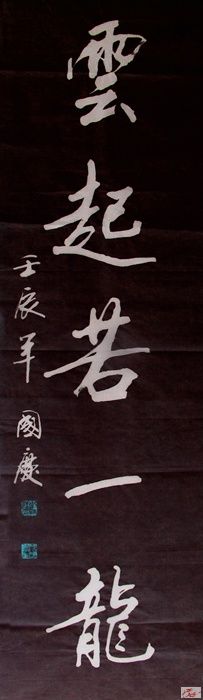 雲起若一龍
壬辰年 國慶